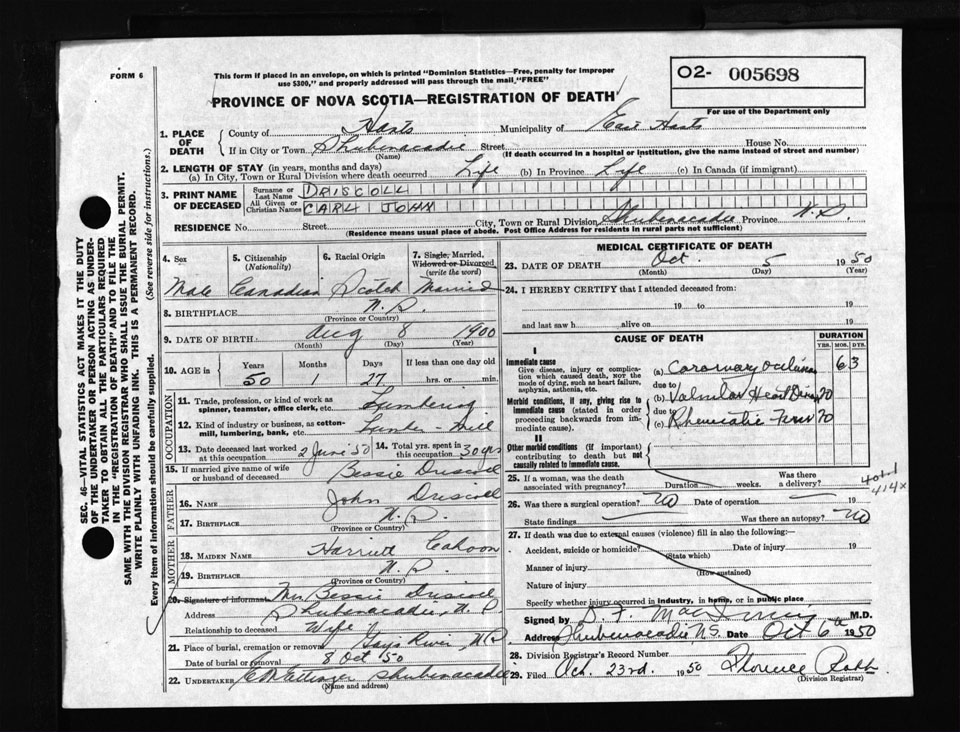 FORM 6
This form if placed in an envelope, on which is printed "Dominion Statistics—Free, penalty for improper
use $300," and properly addressed will pass through the mail "FREE"
O2- 005698
For use of the Department only
PROVINCE OF NOVA SCOTIA—REGISTRATION OF DEATH
1. PLACE OF DEATH
County of Hants Municipality of East Hants
If in City or Town Shubenacadie Street House No.
(Name) (If death occurred in a hospital or institution, give the name instead of street and number)
2. LENGTH OF STAY (in years, months and days)
(a) In City, Town or Rural Division where death occurred Life (b) In Province Life (c) In Canada (if immigrant)
3. PRINT NAME OF DECEASED
Surname or Last Name DRISCOLL
All Given or Christian Names CARL JOHN
RESIDENCE No. Street City, Town or Rural Division Shubenacadie Province N.S.
(Residence means usual place of abode. Post Office Address for residents in rural parts not sufficient)
4. Sex 5. Citizenship (Nationality) 6. Racial Origin 7. Single, Married, Widowed or Divorced (write the word)
Male Canadian Scotch Married
8. BIRTHPLACE N.S.
(Province or Country)
9. DATE OF BIRTH Aug 8 1900
(Month) (Day) (Year)
10. AGE in Years Months Days If less than one day old
50 1 27 hrs. or min.
OCCUPATION
11. Trade, profession, or kind of work as
spinner, teamster, office clerk, etc. Lumbering
12. Kind of industry or business, as cotton-
mill, lumbering, bank, etc.
13. Date deceased last worked at this occupation 2 June 50 14. Total yrs. spent in this occupation 30 yrs
15. If married give name of wife
or husband of deceased Bessie Driscoll
FATHER
16. NAME John Driscoll
17. BIRTHPLACE N.S.
(Province or Country)
MOTHER
18. MAIDEN NAME Harriett Cahoon
19. BIRTHPLACE N.S.
(Province or Country)
20. Signature of informant Mrs Bessie Driscoll
Address Shubenacadie, N.S
Relationship to deceased Wife
21. Place of burial, cremation or removal Gays River, N.S.
Date of burial or removal 8 Oct '50
22. UNDERTAKER Shubenacadie
(Name and address)
MEDICAL CERTIFICATE OF DEATH
23. DATE OF DEATH Oct. 5 1950
(Month) (Day) (Year)
24. I HEREBY CERTIFY that I attended deceased from:
19 to 19
and last saw h alive on 19
CAUSE OF DEATH DURATION
YRS. MOS. DYS.
I
Immediate cause
Give disease, injury or complica-
tion which caused death, NOT the
mode of dying, such as heart failure,
asphyxia, asthenia, etc.
(a) Coronary occlusion 63
due to
Morbid conditions, if any, giving rise to
immediate cause (stated in order
proceeding backwards from im-
mediate cause).
(b) Valvular Heart Disease 20
due to
(c) Rheumatic Fever 20
II
Other morbid conditions (if important)
contributing to death but not
causally related to immediate cause.
25. If a woman, was the death associated with pregnancy? Duration weeks. Was there a delivery?
414x
26. Was there a surgical operation? No Date of operation 19
State findings Was there an autopsy? No
27. If death was due to external causes (violence) fill in also the following:—
Accident, suicide or homicide? Date of injury 19
(State which)
Manner of injury
(How sustained)
Nature of injury
Specify whether injury occurred in industry, in home, or in public place
Signed by M.D.
Address Shubenacadie N.S. Date Oct 6th 1950
28. Division Registrar's Record Number
29. Filed Oct. 23rd. 1950 Florence Robb
(Division Registrar)
SEC. 46—VITAL STATISTICS ACT MAKES IT THE DUTY
OF THE UNDERTAKER OR PERSON ACTING AS UNDER-
TAKER TO OBTAIN ALL THE PARTICULARS REQUIRED
IN THE "REGISTRATION OF DEATH" AND TO FILE THE
SAME WITH THE DIVISION REGISTRAR WHO SHALL ISSUE THE BURIAL PERMIT.
WRITE PLAINLY WITH UNFADING INK. THIS IS A PERMANENT RECORD.
Every item of information should be carefully supplied. (See reverse side for instructions.)